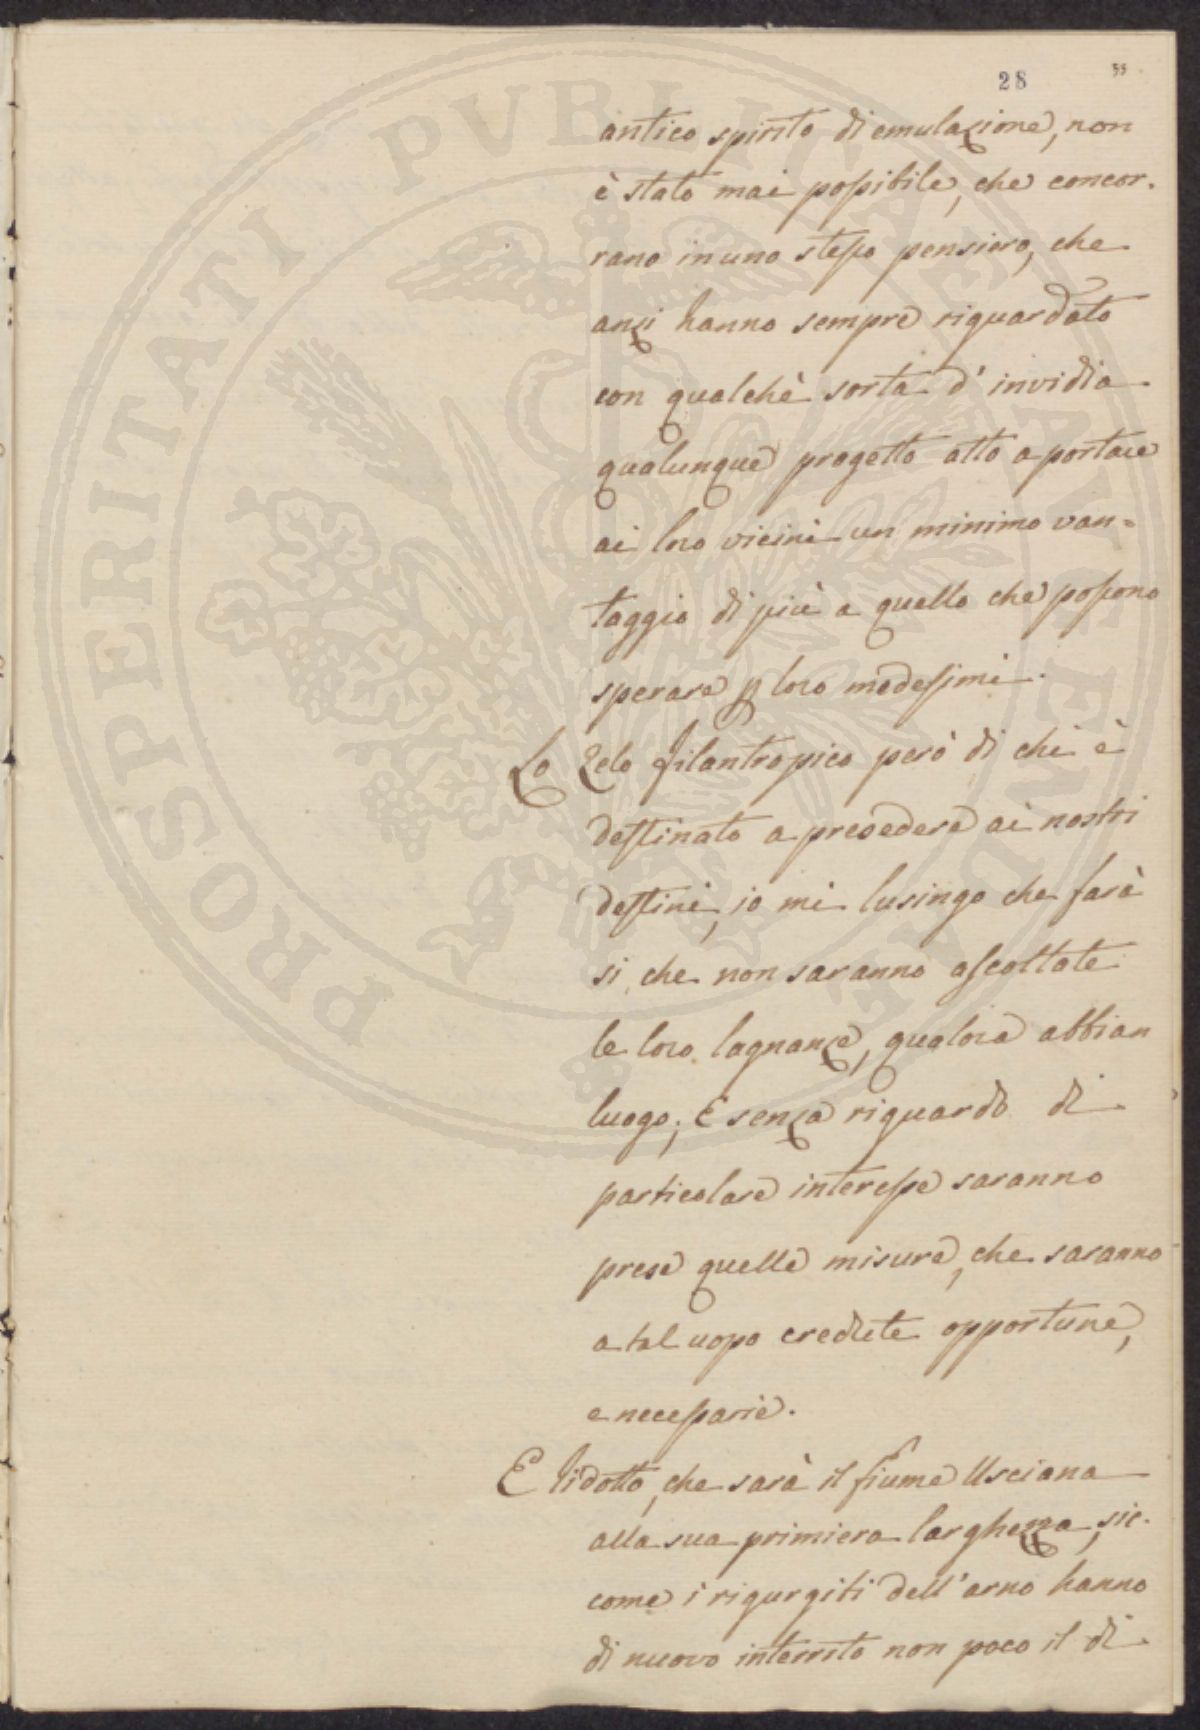 28
55
antico spirito di emulazione, non
è stato mai possibile, che concor.
rano in uno stesso pensiero, che
anzi hanno sempre riguardato
con qualchè sorta d'invidia
qualunque progetto atto a portare
ai loro vicini un minimo van=
taggio di più a quello che possono
sperare p loro medesimi.
Lo Zelo filantropico però di chi è
destinato a presedere ai nostri
destini, io mi lusingo che farà
si, che non saranno ascoltate
le loro lagnanze, qualora abbian
luogo; E senza riguardo di
particolare interesse saranno
prese quelle misure, che saranno
a tal uopo credute opportune,
e necessarie.
E ridotto, che sarà il fiume Usciana
alla sua primiera larghezza, sic.
come i rigurgiti dell'arno hanno
di nuovo interrito non poco il di
PROSPERITATI PVBLICAE AVGENDAE